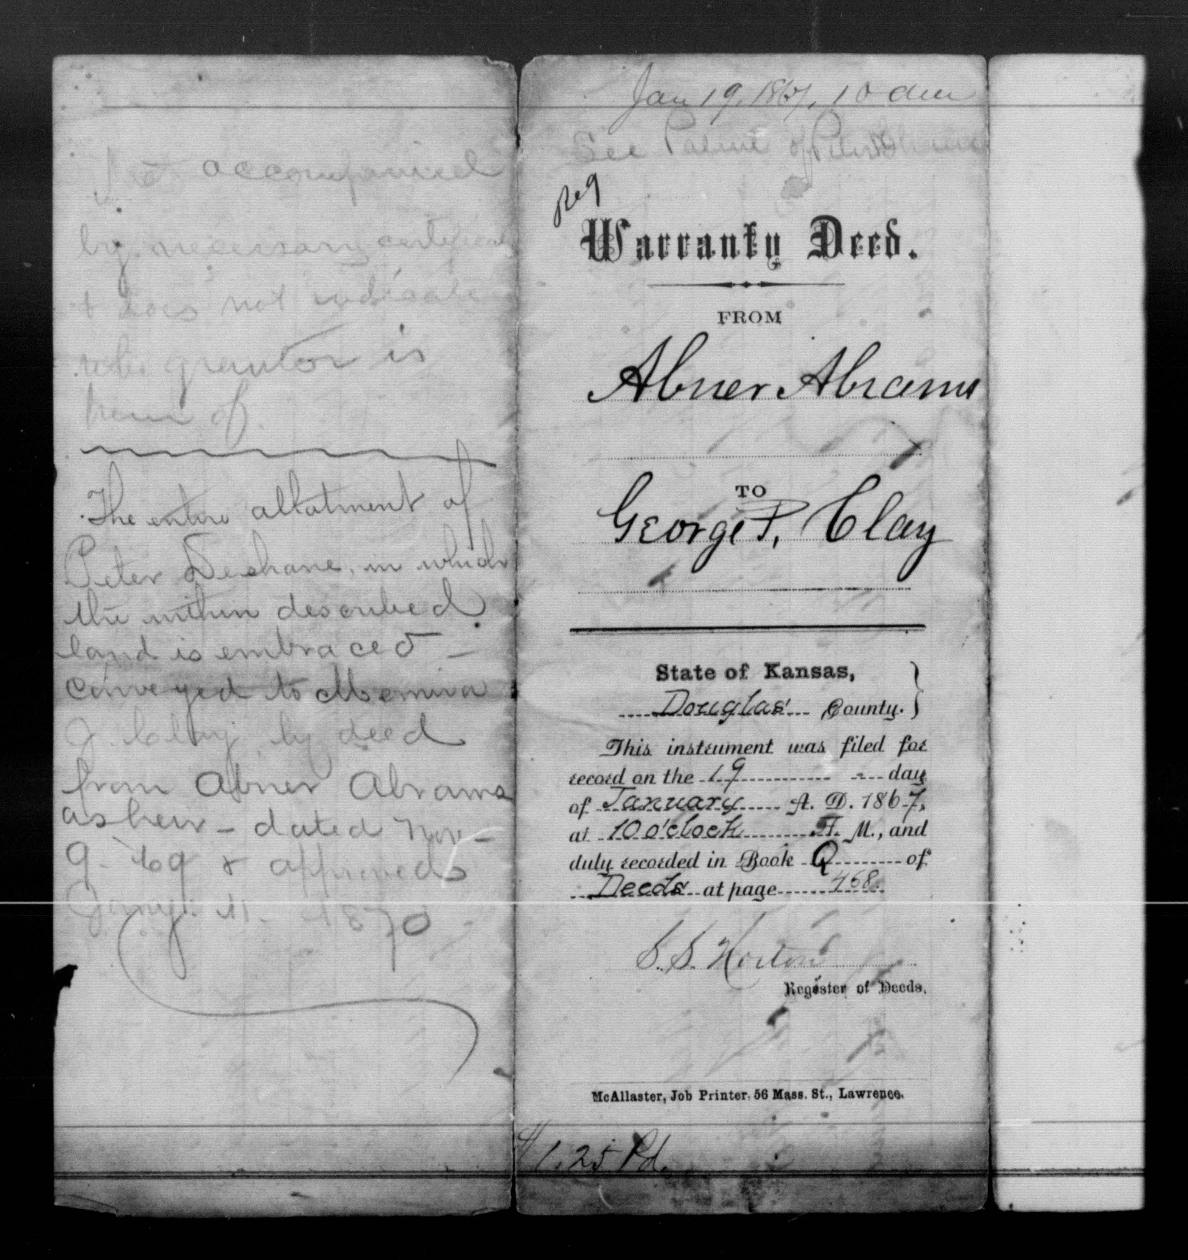 Not accompanied
by necessary certificate
& does not indicate
who grantor is
heir of.
The entire allotment of
Peter Deshane, in which
the within described
land is embraced –
conveyed to Memiva
J. Clay by deed
from Abner Abrams
as heir – dated Nov –
9 - 69 & approved
Jany 11 - 1870
Jan 19, 1867, 10 am
See Patent of Peter
Reg
Warranty Deed.
FROM
Abner Abrams
TO
George P. Clay
State of Kansas,
Douglas County.
This instrument was filed for
record on the 19 day
of January A. D. 1867,
at 10 o'clock A. M., and
duly recorded in Book Q of
Deeds at page 468.
S. S. Horton
Register of Deeds.
McAllaster, Job Printer, 56 Mass. St., Lawrence.
$1.25 Pd.